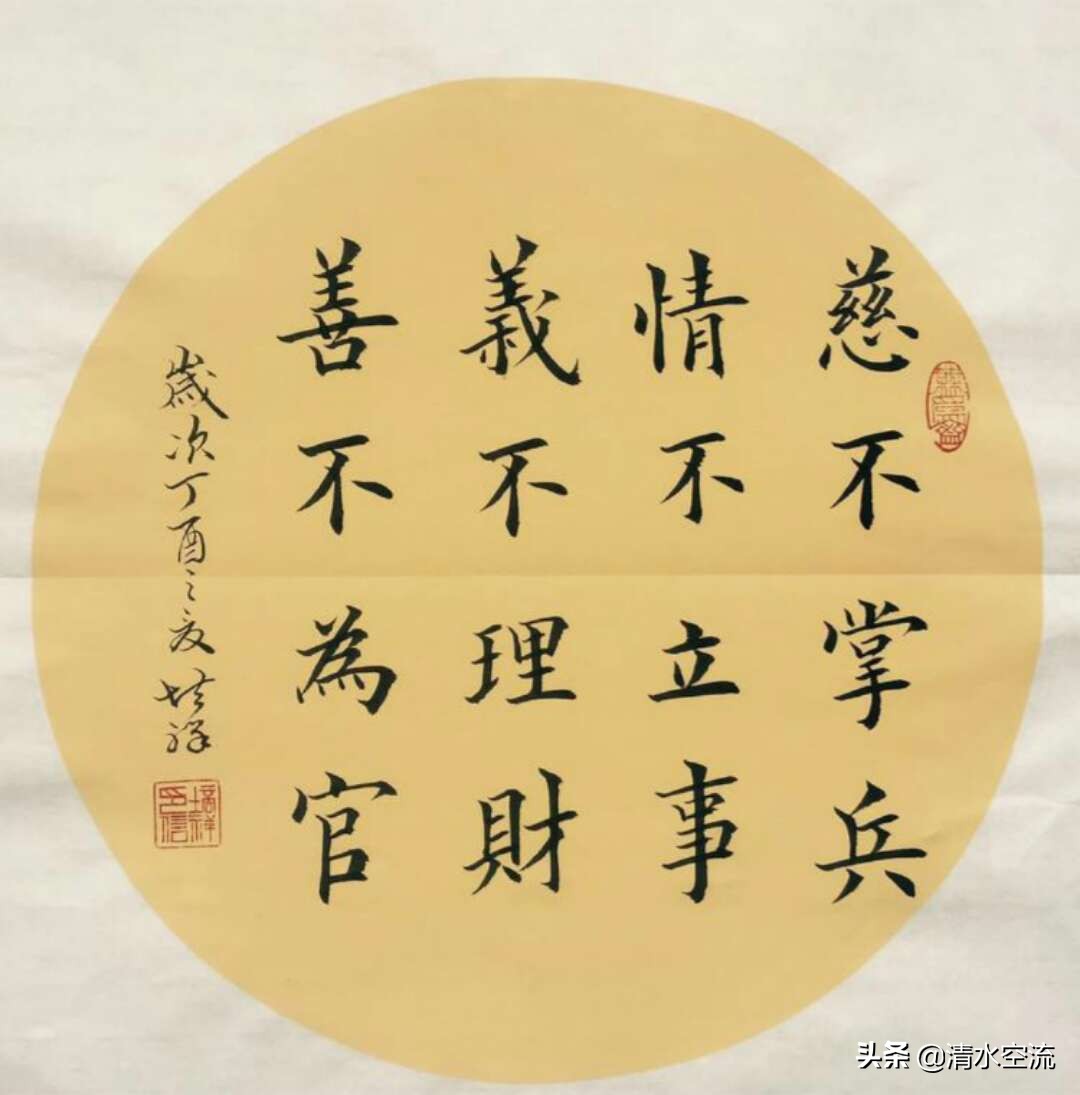 慈不掌兵
情不立事
義不理財
善不為官
歲次丁酉之夏 培祥
頭条 @清水空流